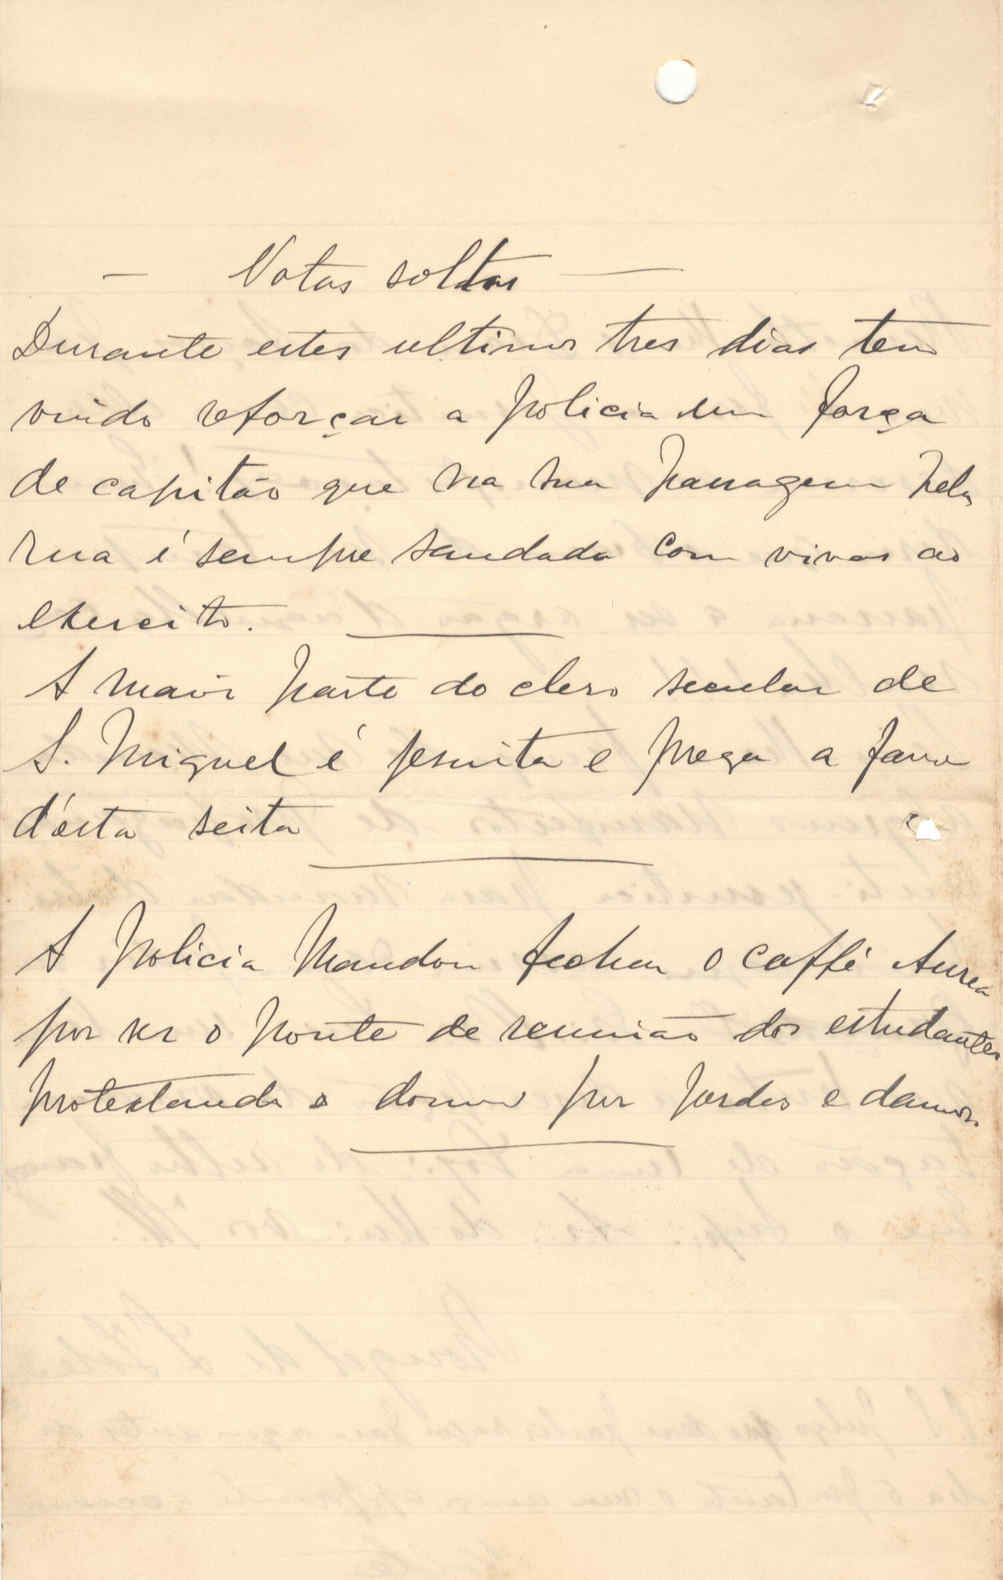 — Notas soltas —
Durante estes ultimos tres dias tem
vindo reforçar a policia um força
de capitão que na sua passagem pela
rua é sempre saudada com vivas ao
exercito.
A maior parte do clero secular de
S. Miguel é jesuita e prega a favor
d'esta seita
A policia mandou fechar o caffé Aurea
por ser o ponte de reunião dos estudantes
protestando o dono por perdas e damnos